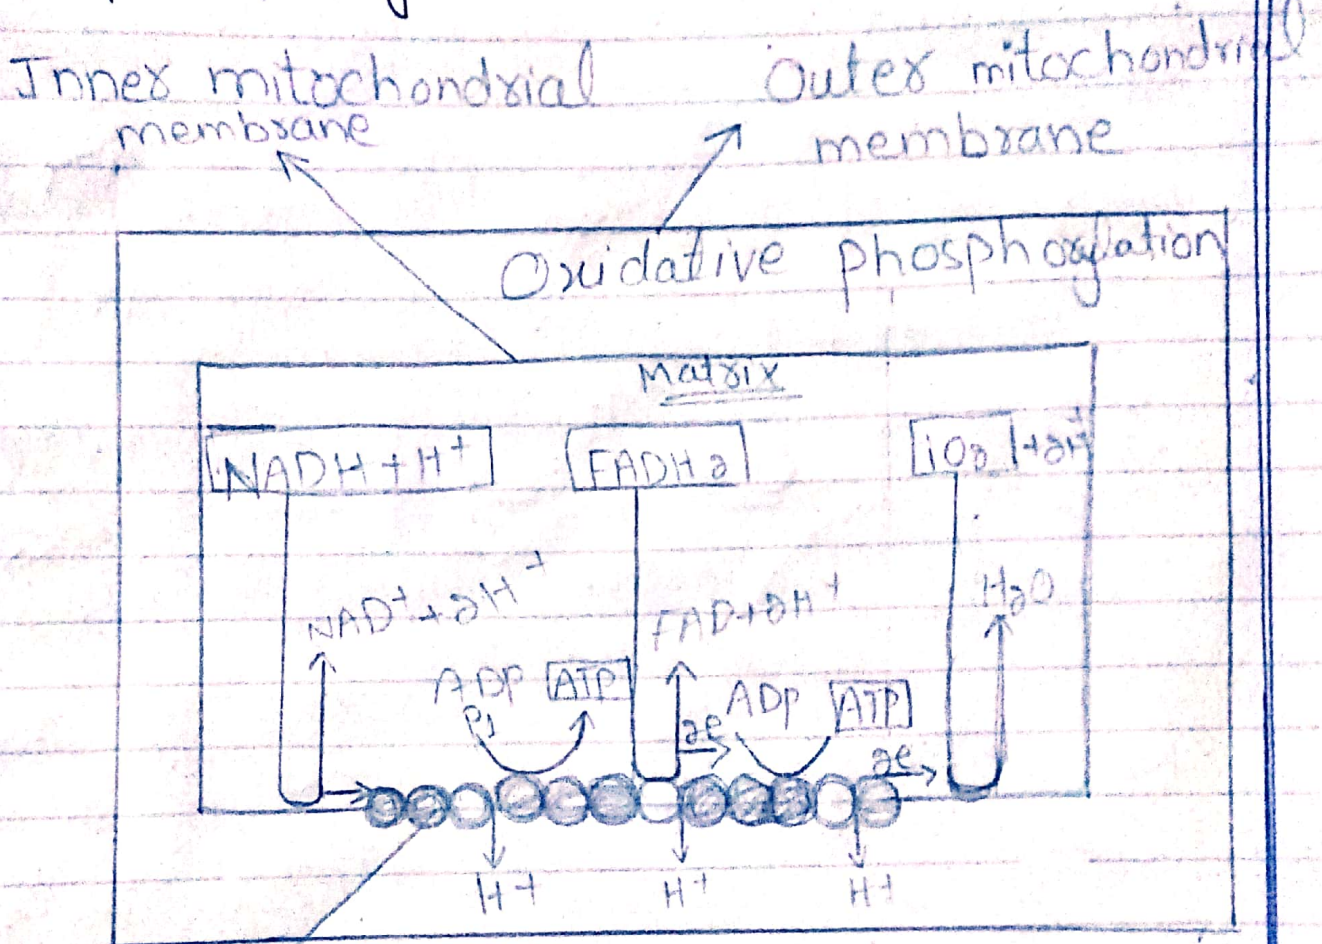 Inner mitochondrial
membrane
Outer mitochondrial
membrane
Oxidative phosphorylation
Matrix
NADH+H+
FADH2
O2 +2H+
NAD++2H+
FAD+2H+
H2O
ADP ATP
Pi
2e
ADP ATP
2e
H+ H+ H+